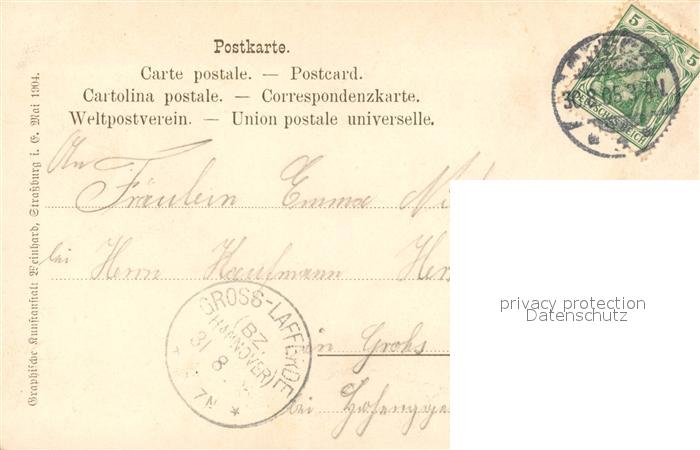 Postkarte.
Carte postale. — Postcard.
Cartolina postale. — Correspondenzkarte.
Weltpostverein. — Union postale universelle.
5
5
DEUTSCHES REICH
30. 8. 05. 3-4N
An
Fräulein Emma
bei Herrn Kaufmann
in Grohs
bei Hohenegge
GROSS-LAFFERDE
(BZ. HANNOVER)
31 8
7N
*
Graphische Kunstanstalt Weinhard, Straßburg i. E. Mai 1904.
privacy protection
Datenschutz